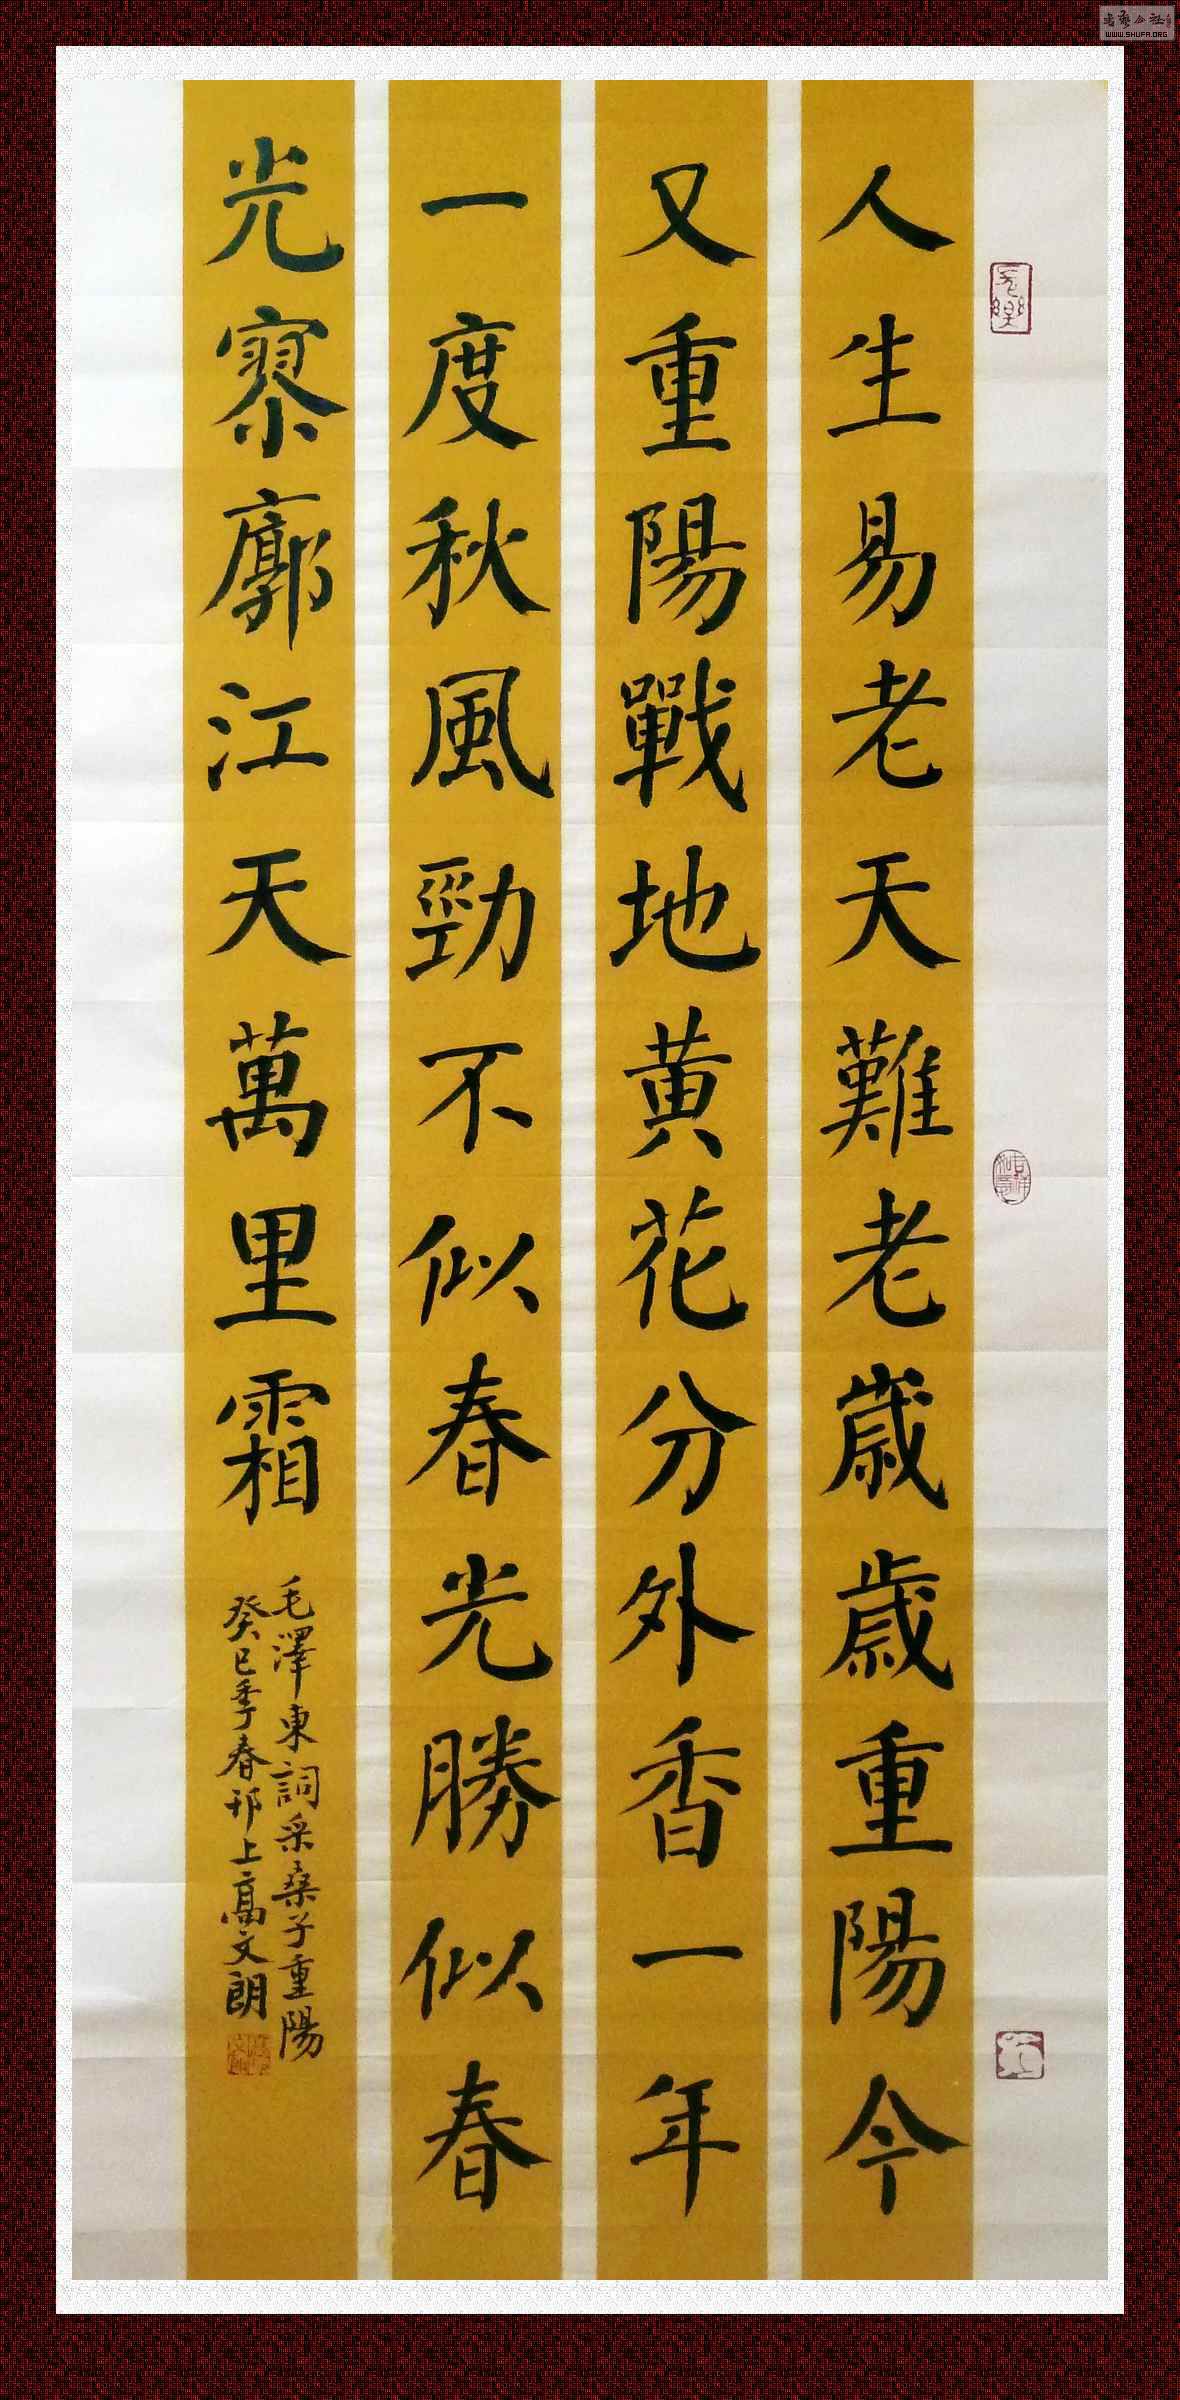 人生易老天難老歲歲重陽今
又重陽戰地黄花分外香一年
一度秋風勁不似春光勝似春
光寥廓江天萬里霜
毛澤東詞采桑子重陽
癸巳季春邗上高文朗
WWW.SHUFA.ORG